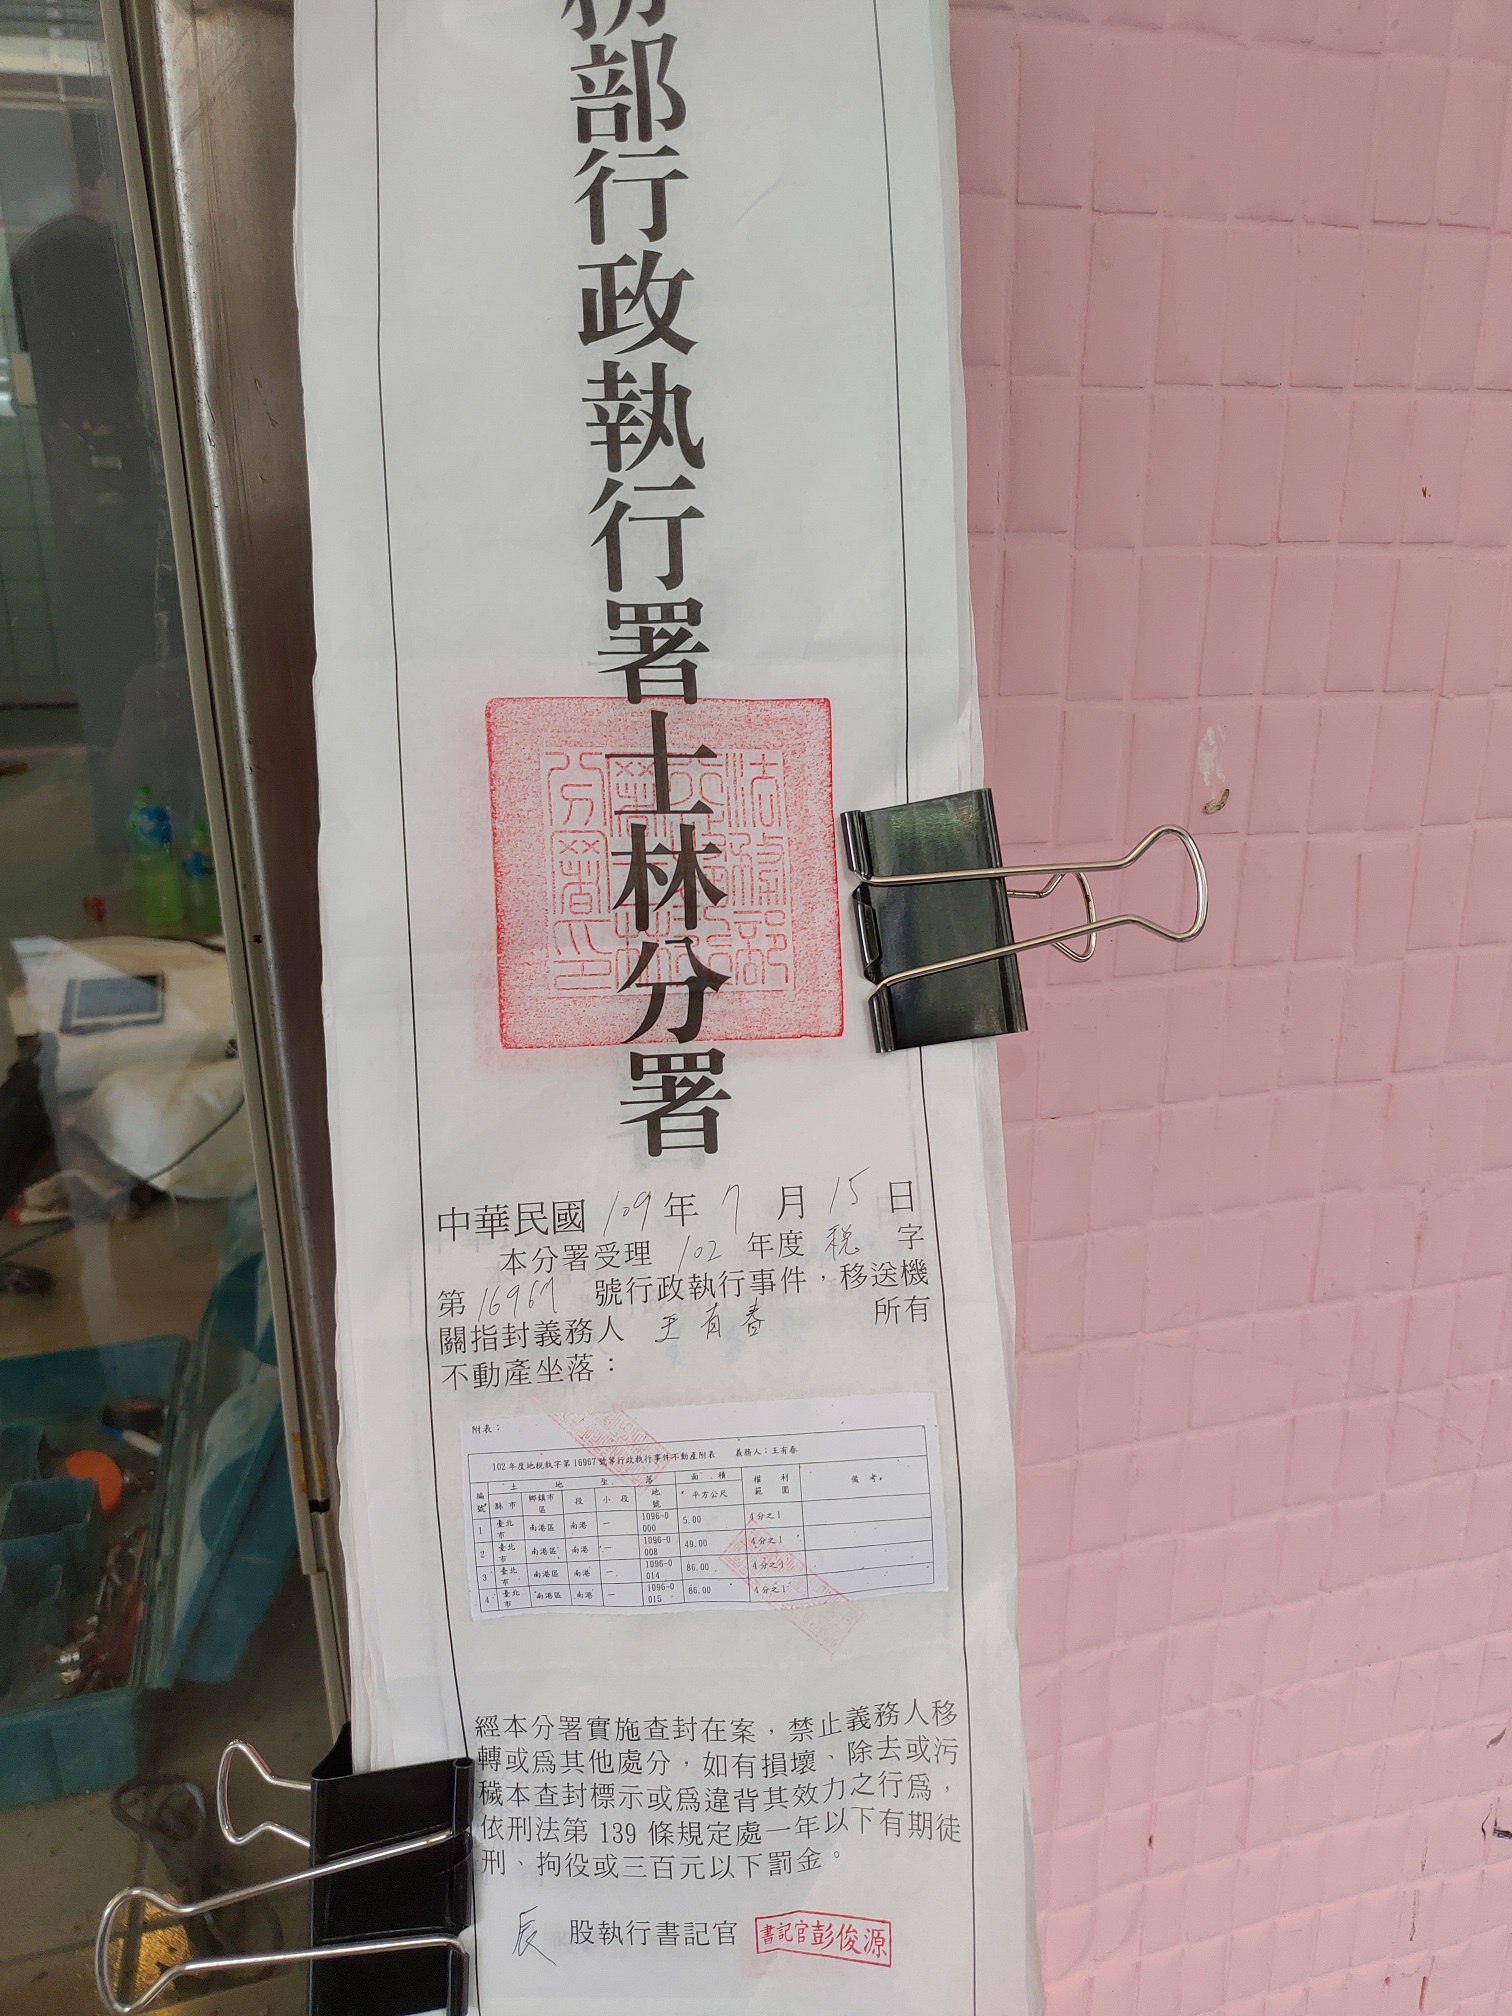 部行政執行署士林分署
法務部行政執行署士林分署印
中華民國109年7月15日
本分署受理102年度稅字
第16967號行政執行事件，移送機
關指封義務人王有春所有
不動產坐落：
附表：
102年度地稅執字第16967號等行政執行事件不動產附表 義務人：王有春
編號 土地坐落 面積 權利範圍 備考
縣市 鄉鎮市區 段 小段 地號 平方公尺
1 臺北市 南港區 南港 一 1096-0000 5.00 4分之1
2 臺北市 南港區 南港 一 1096-0008 49.00 4分之1
3 臺北市 南港區 南港 一 1096-0014 86.00 4分之1
4 臺北市 南港區 南港 一 1096-0015 86.00 4分之1
經本分署實施查封在案，禁止義務人移
轉或為其他處分，如有損壞、除去或污
穢本查封標示或為違背其效力之行為，
依刑法第139條規定處一年以下有期徒
刑、拘役或三百元以下罰金。
辰 股執行書記官 書記官彭俊源